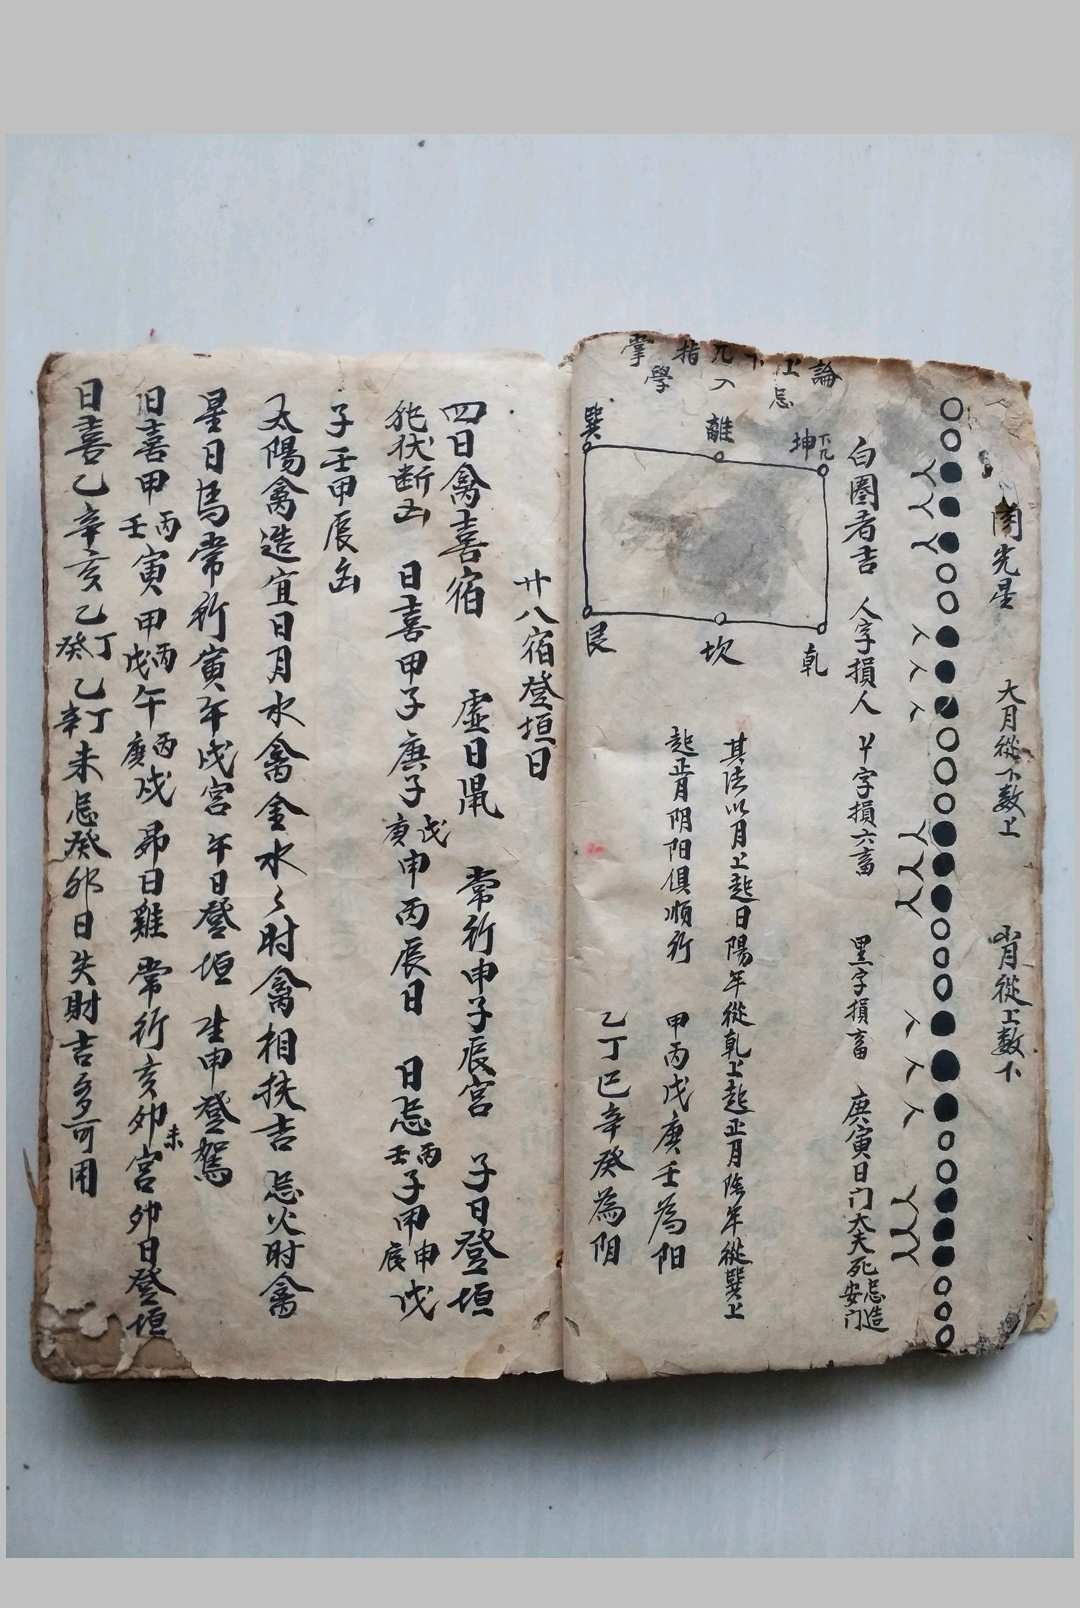 周光星　大月從下数上　小月從上数下
白圈者吉　人字損人　丫字損六畜　黑字損畜　庚寅日门大夫死忌造安门
論上下兀入指掌
忌　學
巽　離　坤兀
艮　坎　乾
其法以月上起日陽年從乾上起正月陰年從巽上
起正月阴阳俱順行　甲丙戊庚壬為阳
乙丁巳辛癸為阴
廿八宿登垣日
四日禽喜宿　虛日鼠　常行申子辰宮　子日登垣
犯伏断凶　日喜甲子庚子戊庚申丙辰日　日忌丙壬子甲申庚戌
子壬甲辰凶
太陽禽造宜日月水禽金水々时禽相扶吉　忌火时禽
星日馬常行寅午戌宮　午日登垣　生申登駕
日喜甲丙壬寅甲丙戊午丙庚戌　昴日雞　常行亥卯未宮卯日登垣
日喜乙辛亥乙丁癸乙丁辛未忌癸卯日失財吉多可用